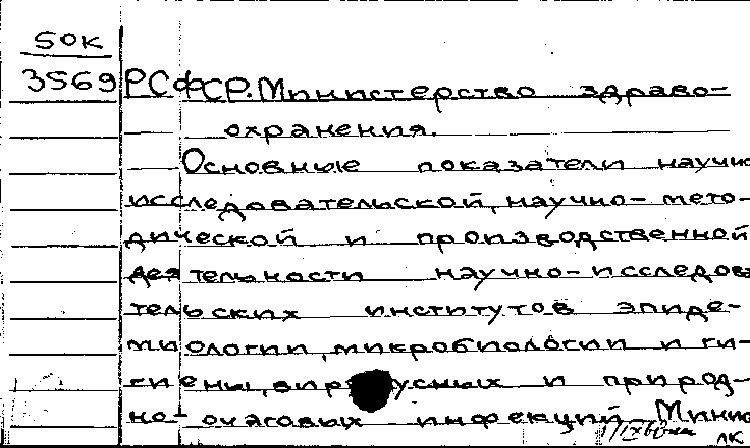 50к
3569 РСФСР. Министерство здраво-
охранения.
Основные показатели научно
исследовательской, научно-мето-
дической и производственной
деятельности научно-исследова
тельских институтов эпиде-
миологии, микробиологии и ги-
гиены, вирусных и природ-
но-очаговых инфекций Минис
лк